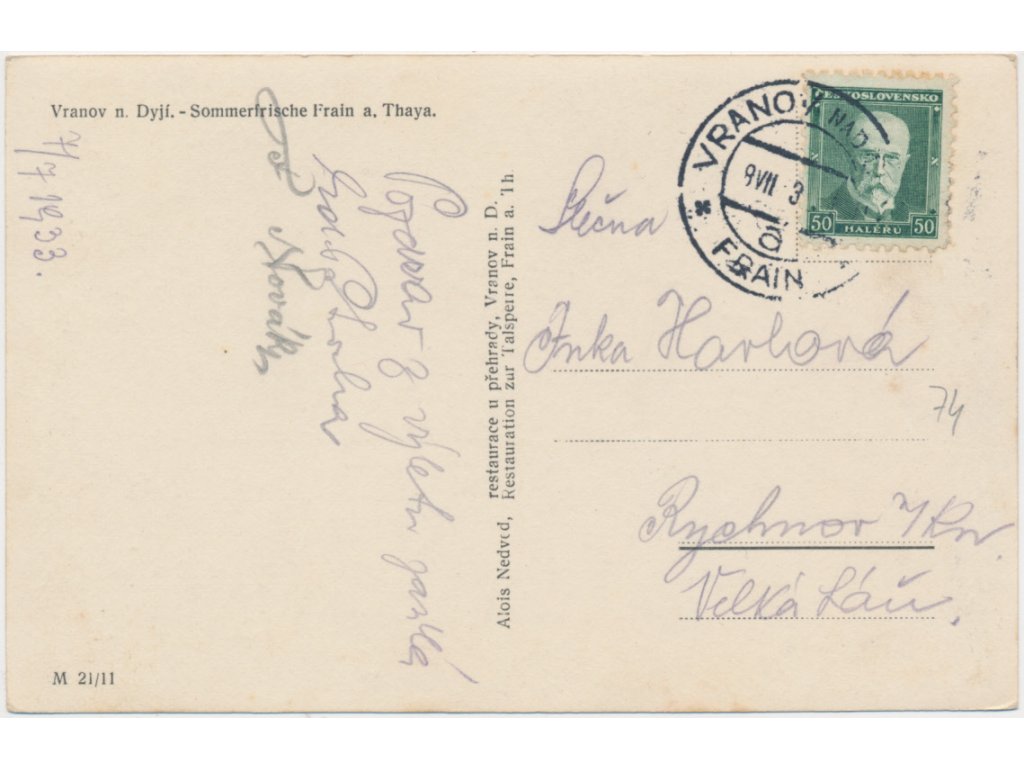 Vranov n. Dyjí. - Sommerfrische Frain a. Thaya.
7/7 1933.
Pozdrav z výletu
Nováky
Alois Nedved, restaurace u přehrady, Vranov n. D.
Restauration zur Talsperre, Frain a. Th
M 21/11
VRANOV NAD
FRAIN
ČESKOSLOVENSKO
50 HALÉŘŮ 50
Slečna
Inka Havlová
74
Rychnov n/Kn.
Velká Láň.